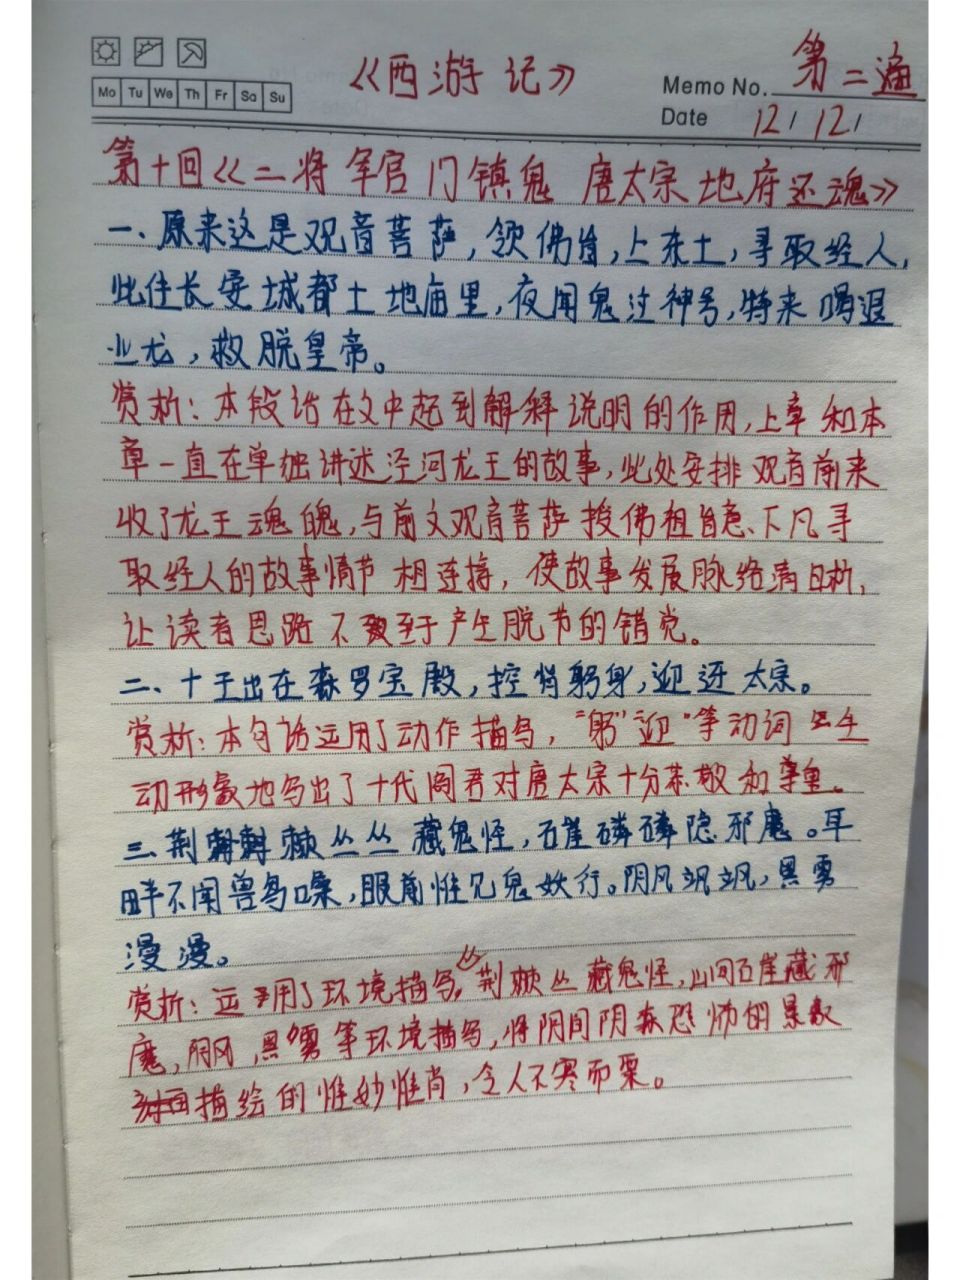 《西游记》
Memo No. 第二遍
Mo Tu We Th Fr Sa Su
Date 12/12/
第十回《二将军宫门镇鬼 唐太宗地府还魂》
一、原来这是观音菩萨,领佛旨,上东土,寻取经人,
此住长安城都土地庙里,夜闻鬼泣神号,特来喝退
业龙,救脱皇帝。
赏析:本段话在文中起到解释说明的作用,上章和本
章一直在单独讲述泾河龙王的故事,此处安排观音前来
收了龙王魂魄,与前文观音菩萨授佛祖旨意、下凡寻
取经人的故事情节相连接,使故事发展脉络清晰,
让读者思路不至于产生脱节的错觉。
二、十王出在森罗宝殿,控背躬身,迎迓太宗。
赏析:本句话运用了动作描写,“躬”“迎”等动词生
动形象地写出了十代阎君对唐太宗十分恭敬和尊重。
三、荆棘丛丛藏鬼怪,石崖磷磷隐邪魔。耳
畔不闻兽鸟噪,眼前惟见鬼妖行。阴风飒飒,黑雾
漫漫。
赏析:运用了环境描写,“荆棘丛藏鬼怪,山间石崖藏邪
魔,阴风,黑雾”等环境描写,将阴间阴森恐怖的景象
描绘的惟妙惟肖,令人不寒而栗。